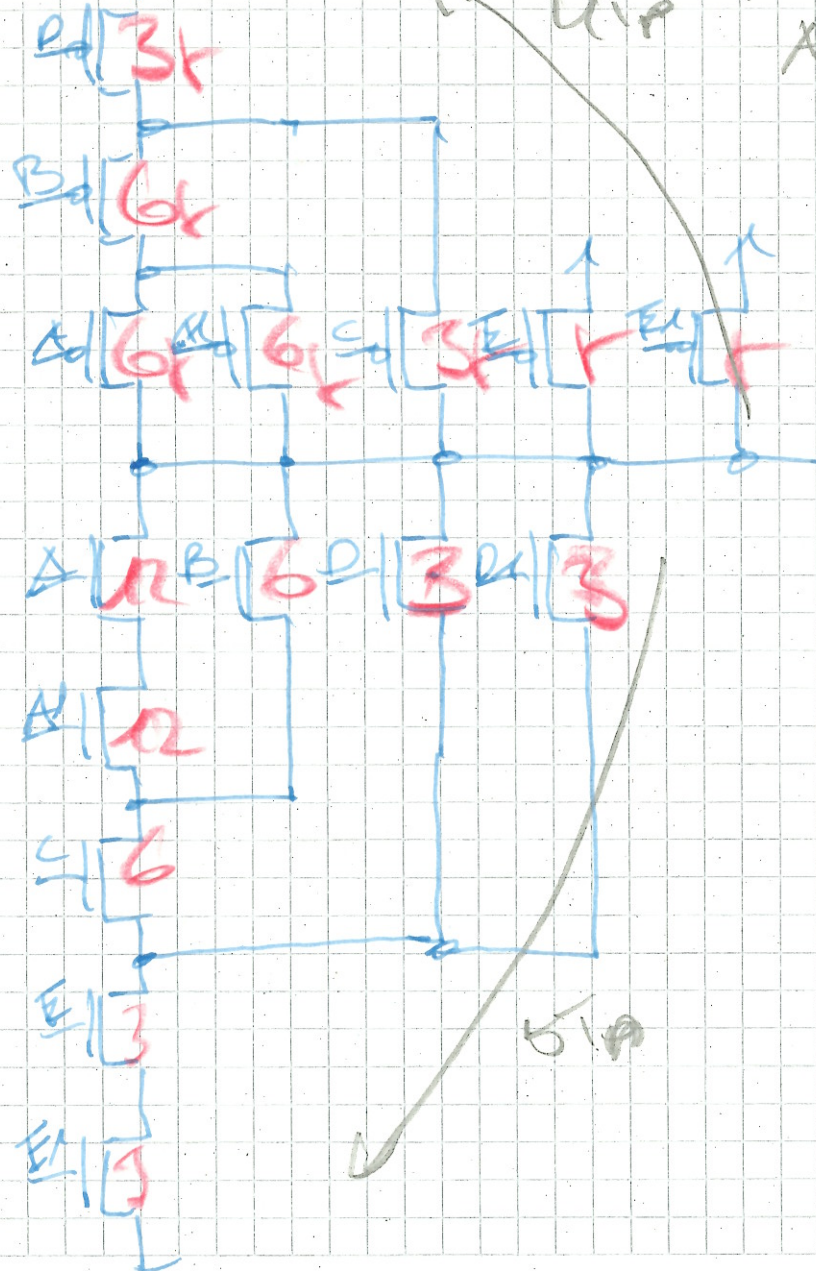 D 3r
B 6r
A 6r A1 6r C 3r E r E1 r
A 12 B 6 D 3 D1 3
A1 12
C 6
E 3
E1 3